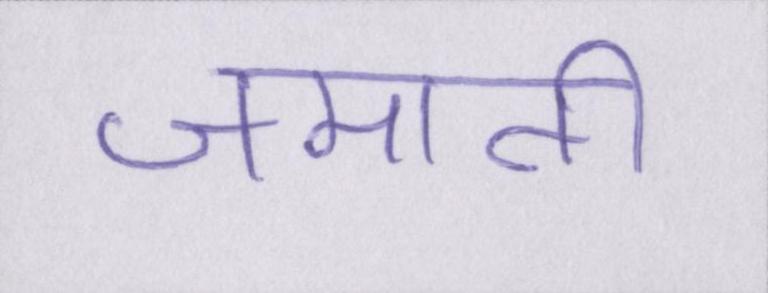 जमाती